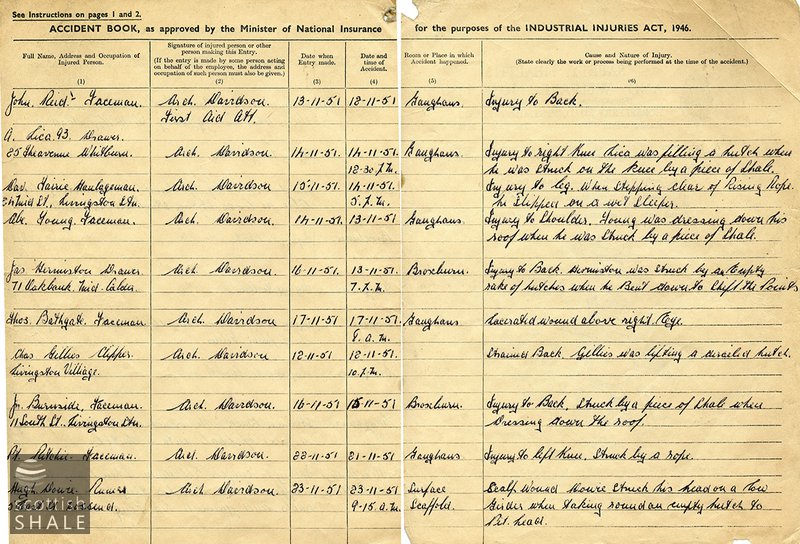 See Instructions on pages 1 and 2.
ACCIDENT BOOK, as approved by the Minister of National Insurance for the purposes of the INDUSTRIAL INJURIES ACT, 1946.
Full Name, Address and Occupation of Injured Person.
(1)
Signature of injured person or other person making this Entry.
(If the entry is made by some person acting on behalf of the employee, the address and occupation of such person must also be given.)
(2)
Date when Entry made.
(3)
Date and time of Accident.
(4)
Room or Place in which Accident happened.
(5)
Cause and Nature of Injury.
(State clearly the work or process being performed at the time of the accident.)
(6)
John Reid Faceman Arch. Davidson. 13-11-51 12-11-51 Gaughans. Injury to Back.
First Aid Att.
A. Lica. 93. Drawer
25 Theavenue Whitburn. Arch. Davidson 14-11-51. 14-11-51. Gaughans. Injury to right Knee Lica was filling a hutch when
12-30. P.M. he was struck on the knee by a piece of Shale.
Dav. Fairie Haulageman. Arch. Davidson 15-11-51. 14-11-51. Injury to leg. When Stepping clear of Rising Rope
St, Livingston Stn. 5. P.M. he Slipped on a wet Sleeper.
Alex. Young. Faceman. Arch. Davidson. 14-11-51. 13-11-51 Gaughans. Injury to Shoulder, Young was dressing down his
roof when he was struck by a piece of Shale.
Jas. Hermiston Drawer Arch. Davidson 16-11-51 13-11-51 Broxburn. Injury to Back. Hermiston was struck by an Empty
71 Oakbank. Mid-Calder. 7. P.M. rake of hutches when he Bent down to Shift the Points
Thos. Bathgate. Faceman. Arch. Davidson 17-11-51 17-11-51. Gaughans Lacerated wound above right Eye.
A.M.
Chas Gillies Clipper. Arch. Davidson. 12-11-51 12-11-51. Strained Back. Gillies was lifting a derailed hutch.
Livingston Village. 10. P.M.
Jn. Burnside, Faceman. Arch. Davidson. 16-11-51. 15-11-51 Broxburn. Injury to Back, Struck by a piece of Shale when
11 South St. Livingston Stn. Dressing down the roof.
Pt. Ritchie. Faceman. Arch. Davidson. 22-11-51 21-11-51. Gaughans. Injury to left Knee. Struck by a rope.
Hugh Arch Davidson 23-11-51 23-11-51 Surface Scalp Wound struck his head on a low
9-15. A.M. Scaffold. Girder when taking round an empty hutch to
Pit head.
SCOTTISH
SHALE